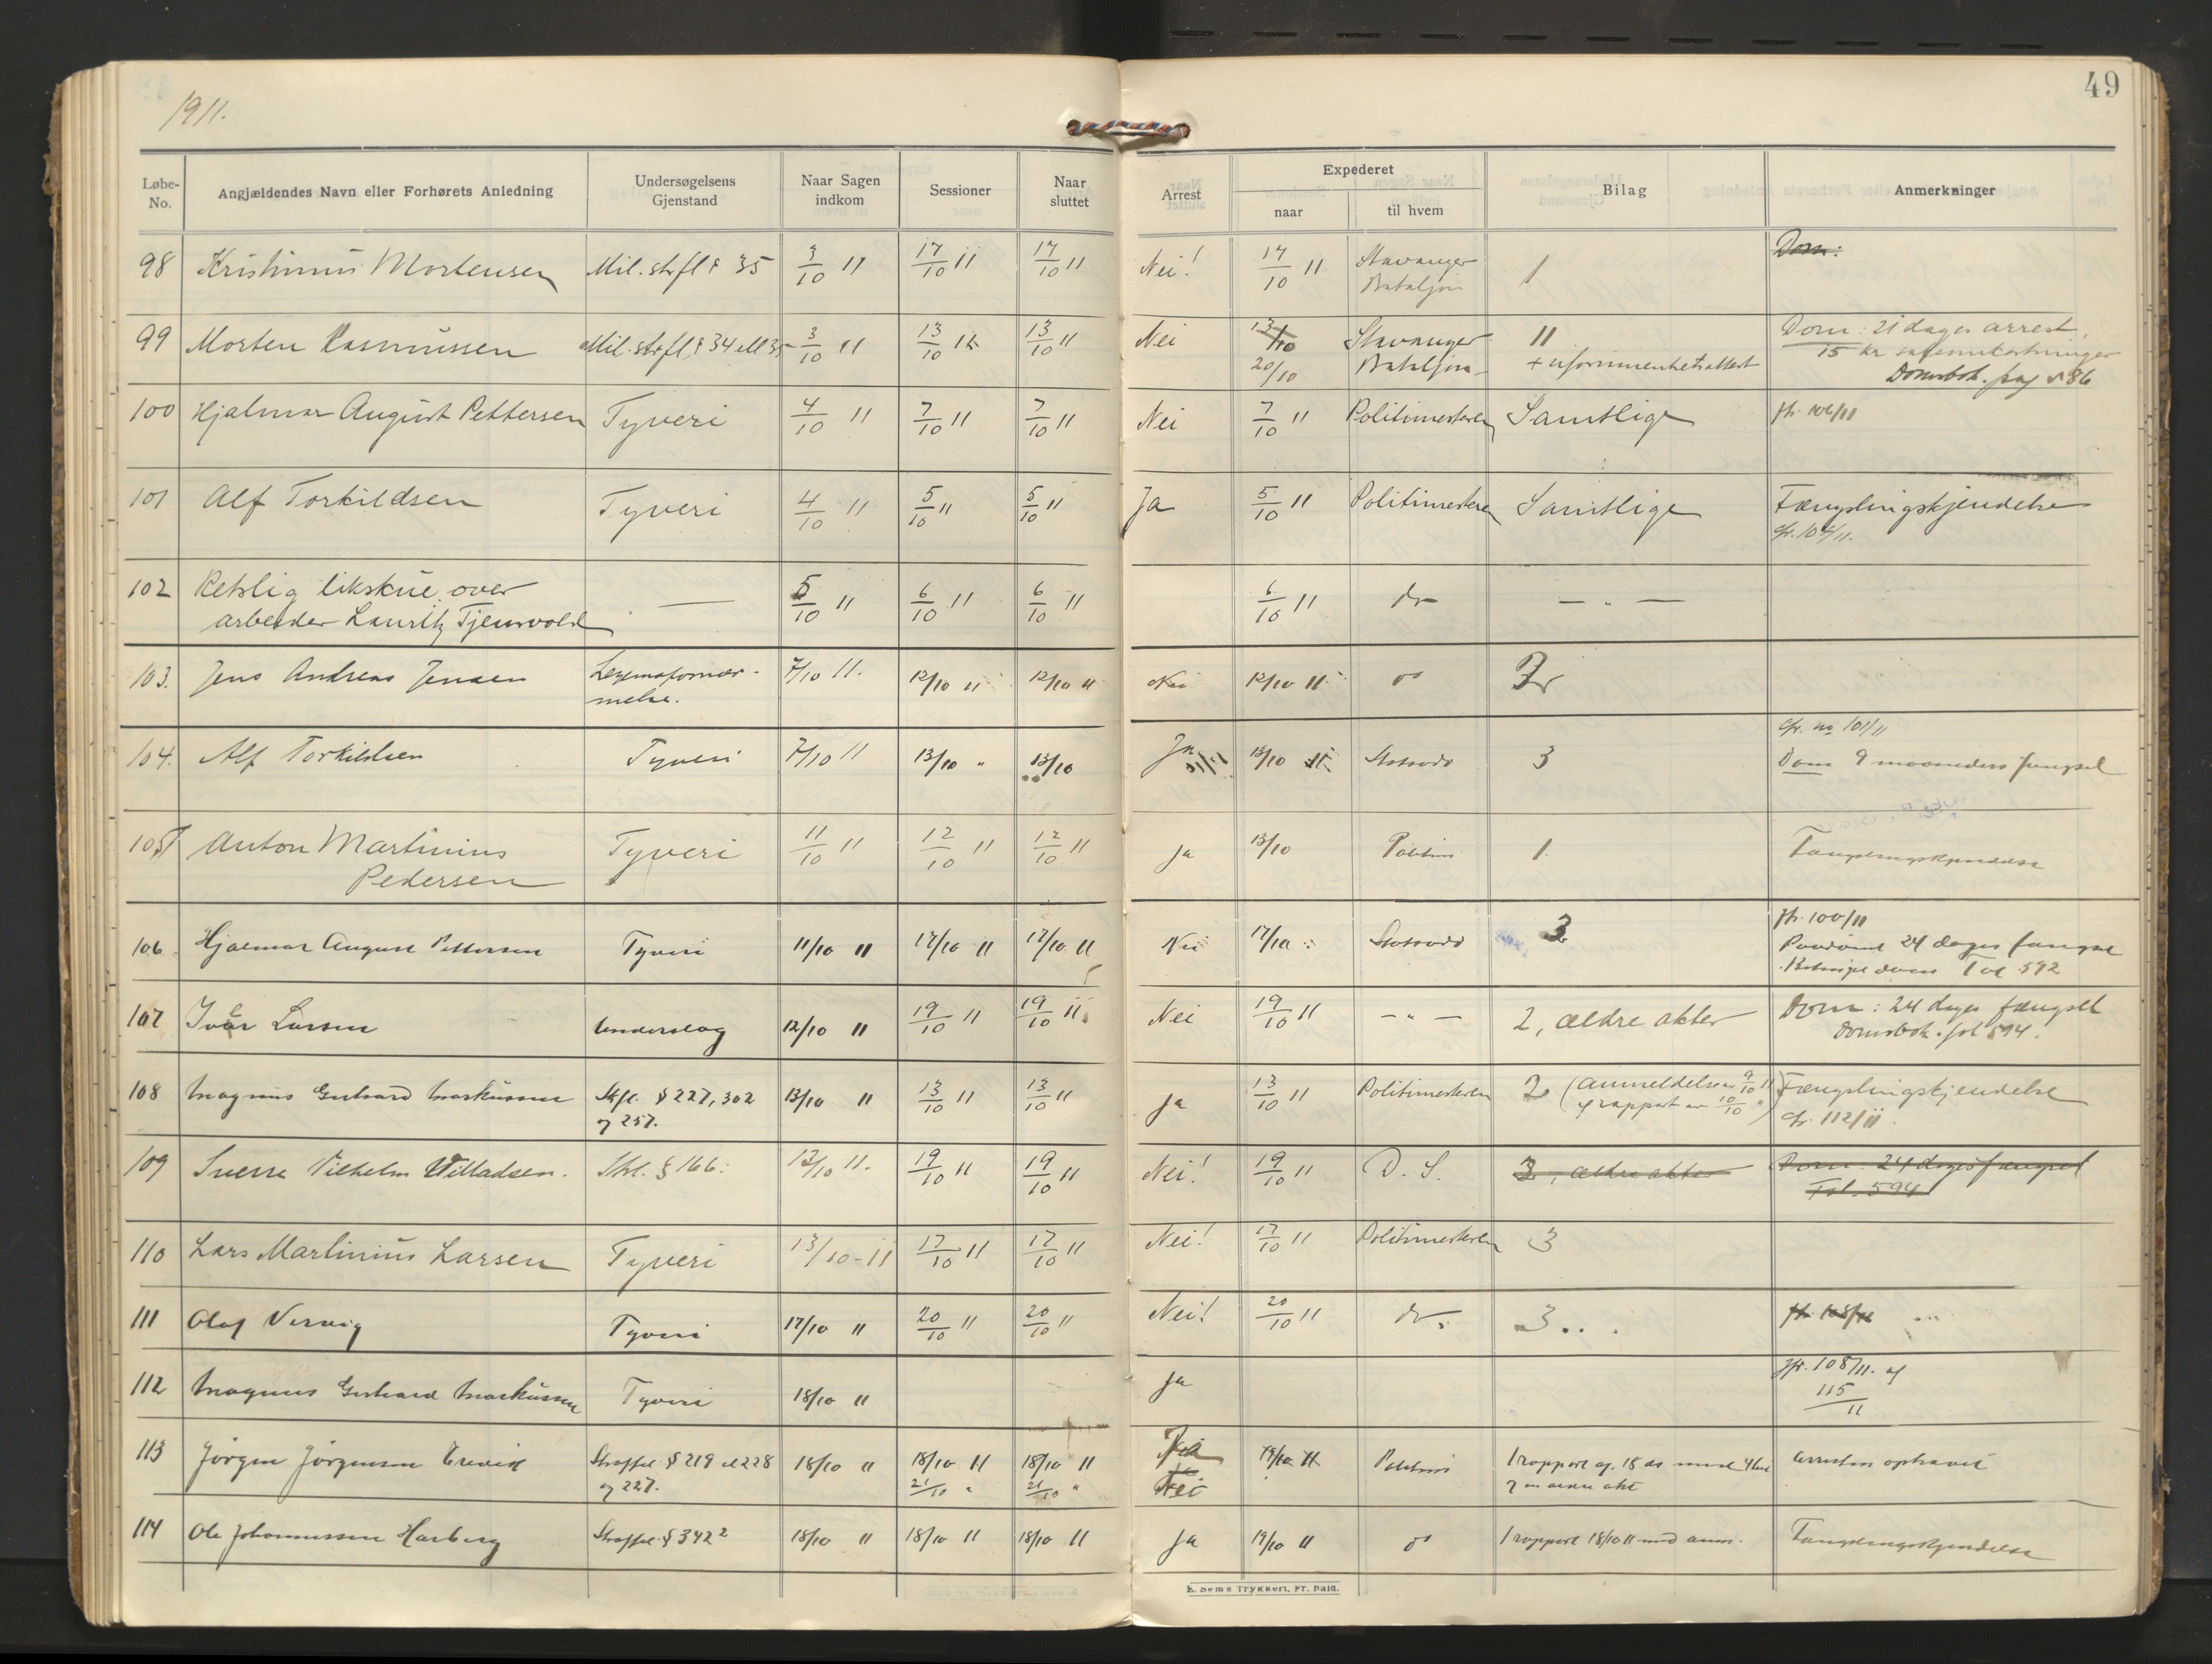 1911.
49
Løbe-No. | Angjældendes Navn eller Forhørets Anledning | Undersøgelsens Gjenstand | Naar Sagen indkom | Sessioner | Naar sluttet | Arrest | Expederet naar | til hvem | Bilag | Anmerkninger
98 Mortensen Mil. strfl § 35 3/10 11 17/10 11 17/10 11 Nei! 17/10 11 Stavanger Bataljon 1 Dom:
99 Morten Rasmussen Mil. strfl § 34 ell 35 3/10 11 13/10 11 13/10 11 Nei 13/10 20/10 Stavanger Bataljon 11 + Dom: 21 dages arrest,
15 kr
Domsbok. pag 586
100 Hjalmar August Pettersen Tyveri 4/10 11 7/10 11 7/10 11 Nei 7/10 11 Politimesteren Samtlige jfr. 106/11
101 Alf Torkildsen Tyveri 4/10 11 5/10 11 5/10 11 Ja 5/10 11 Politimesteren Samtlige Fængslingskjendelse
cfr. 104/11.
102 Retslig likskue over
arbeider Lauritz Tjensvold — 5/10 11 6/10 11 6/10 11 6/10 11 do — " —
103. Jens Andreas Jensen Legemsfornær-
melse. 7/10 11. 12/10 11 12/10 11 Nei 12/10 11 do
104. Alf Torkildsen Tyveri 7/10 11 13/10 " 13/10 Ja 13/10 11 Statsadv 3 cfr. no 101/11
Dom 9 maaneders fængsel
105 Anton Martinius
Pedersen Tyveri 11/10 11 12/10 11 12/10 11 Ja 13/10 Politim 1. Fængslingskjendelse
106 Hjalmar August Pettersen Tyveri 11/10 11 17/10 11 17/10 11 Nei 17/10 Statsadv 3 jfr. 100/11
24 dages fængsel
dom Fol 592
107 Iver Larsen Underslag 12/10 11 19/10 11 19/10 11 Nei 19/10 11 — " — 2, ældre akter Dom: 24 dages fængsel
Domsbok. fol 594.
108 Magnus Gerhard Markussen Stfl. § 227, 302
og 257. 13/10 11 13/10 11 13/10 11 Ja 13/10 11 Politimesteren 2 (anmeldelse av 9/10 11
og rapport av 10/10 ") Fængslingskjendelse
cfr. 112/11.
109 Sverre Vilhelm Villadsen. Stfl. § 166. 13/10 11. 19/10 11 19/10 11 Nei! 19/10 11 D. S. 3, ældre akter Dom: 24 dages fængsel
Fol. 594
110 Lars Martinius Larsen Tyveri 13/10-11 17/10 11 17/10 11 Nei! 17/10 11 Politimesteren 3
111 Olaf Vervig Tyveri 17/10 11 20/10 11 20/10 11 Nei! 20/10 11 do 3 jfr. 108/11
112 Magnus Gerhard Markussen Tyveri 18/10 11 Ja jfr. 108/11. og
115/11
113 Jørgen Jørgensen Straffel § 219 el 228
og 227. 18/10 11 18/10 11 21/10 " 18/10 11 21/10 " Ja Nei 19/10 11 Politim 1 rapport af 18 ds med
og en ældre akt Arresten ophævet
114 Ole Johannessen Harberg Straffel § 342² 18/10 11 18/10 11 18/10 11 Ja 19/10 11 do 1 rapport 18/10 11 med anm. Fængslingskjendelse
E. Sems Trykkeri, Fr.hald.